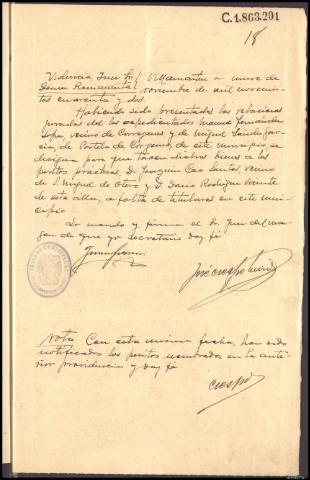 C.1.863.201
18
Providencia Juez Sr. Villamartín a nueve de
noviembre de mil novecien-
tos cuarenta y dos.
Habiendo sido presentadas las relaciones
juradas de los expedientados Manuel Fernández
López, vecino de Correganes y de Miguel
de Portela de Corgomo, de este municipio, se
designa para que tasen dichos bienes a los
peritos practicos, D. Joaquin Cao Santos, vecino
de S. Miguel de Otero y D. Dario Rodriguez Vicente
de esta villa, a falta de titulares en este muni-
cipio
Lo mando y firma el Sr. Juez del mar-
gen de que yo secretario doy fé
Nota Con esta misma fecha, han sido
notificados los peritos nombrados en la ante-
rior providencia y doy fé
Crespo